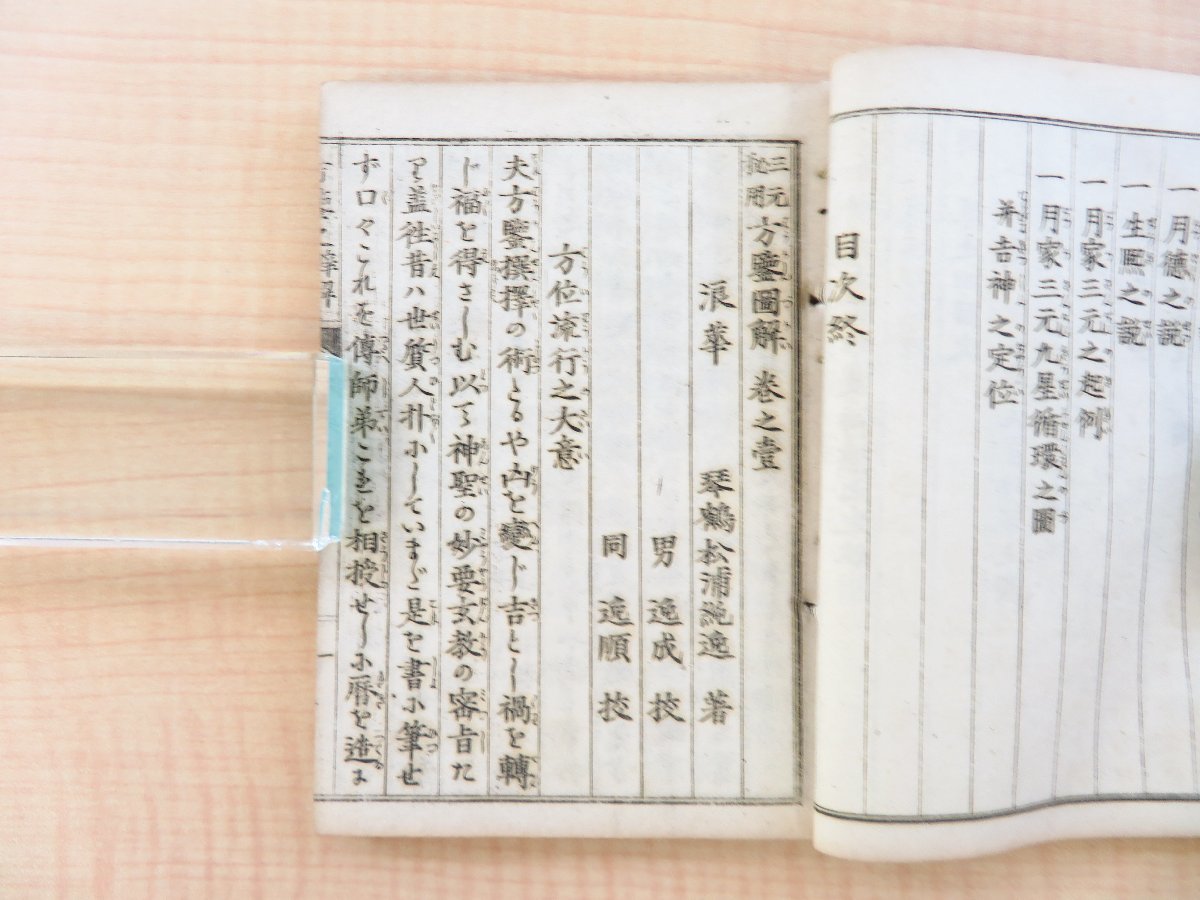 一月德之説
一生熈之説
一月家三元之起例
一月家三元九星循環之圖
并吉神之定位
目次終
三元秘用方鑒圖解 巻之壹
浪華 琴鶴松浦純逸 著
男 逸成 技
同 逸順 技
方位流行之大意
夫方鑒撰擇の術とるや凶を變じ吉とし禍を轉
じ福を得さしむ以て神聖の妙要玄教の密旨た
り蓋徃昔ハ世質人朴にしていまだ是を書に筆せ
ず口々これを傳師弟これを相授せしに暦を造ま